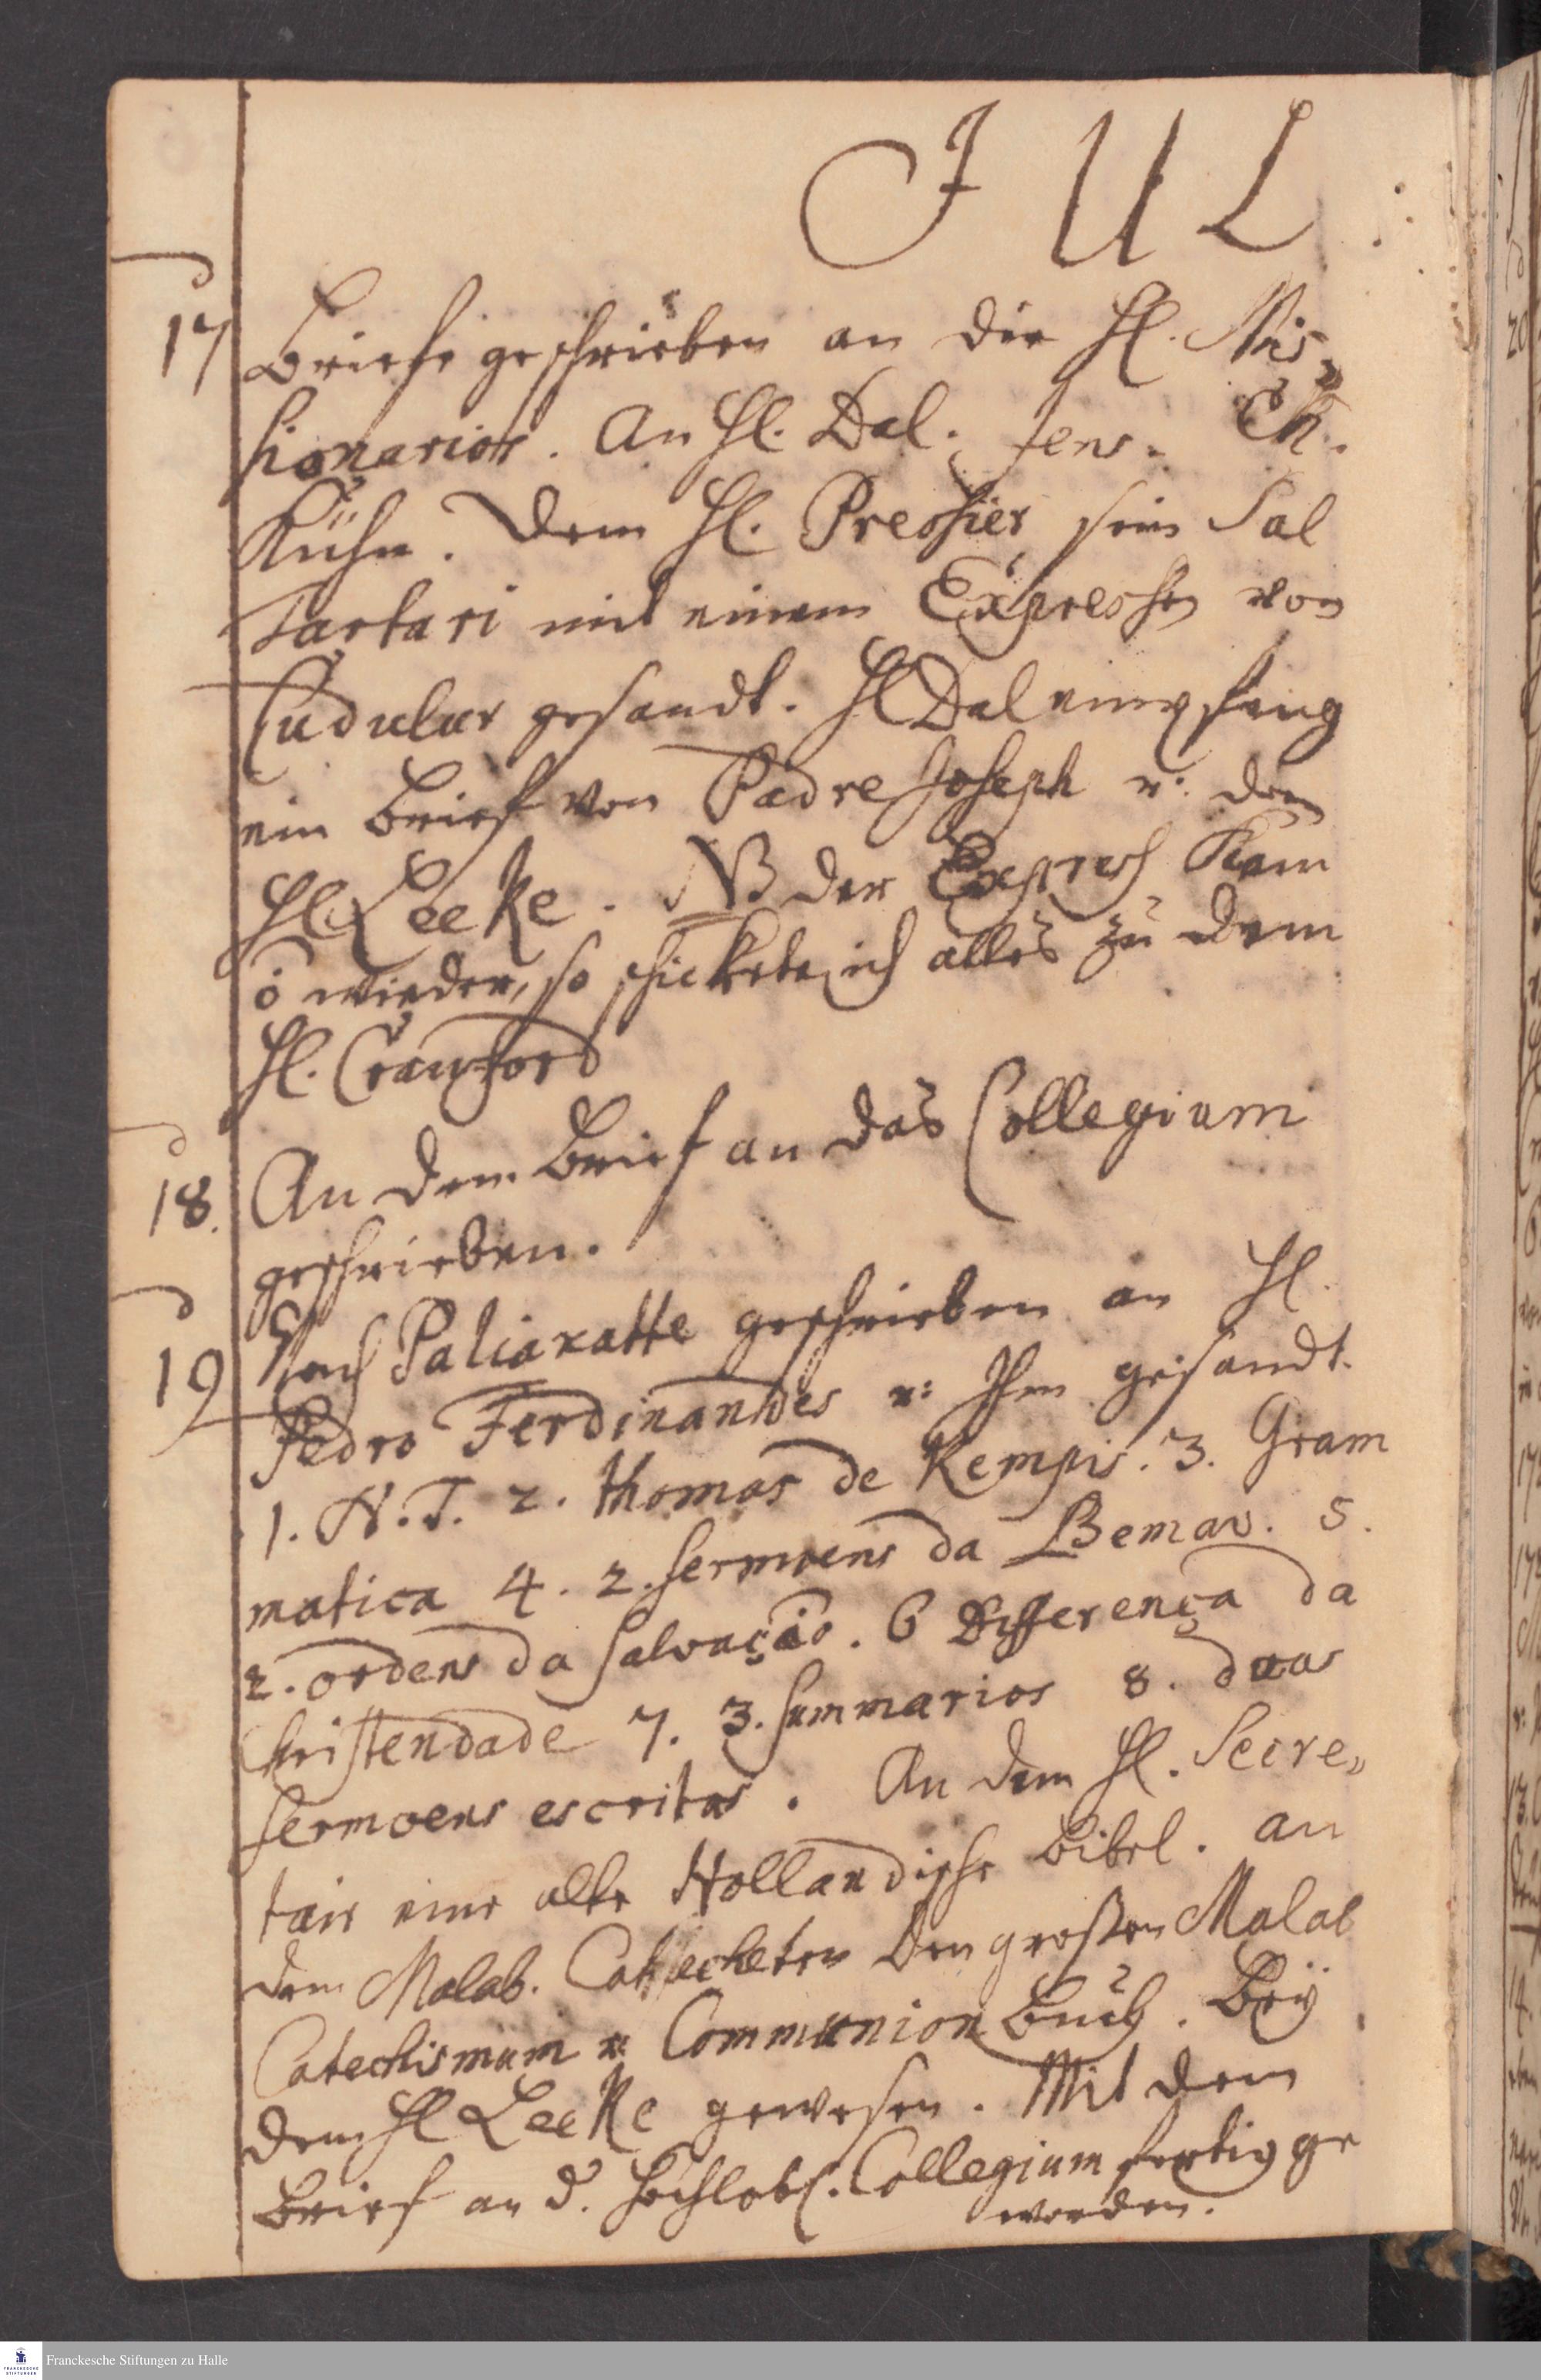 JUL
17 Briefe geschrieben an die Hl. Mis-
sionarios. An Hl. Dal. Jens. Ch.
Kühn. Dem Hl. Pressier sein Sal
Tartari mit einem Expressen von
Cudulur gesandt. Hl Dal empfing
ein Brief von Padre Joseph u: dem
Hl. Leeke. NB der Express kam
õ wieder, so schickete ich alles zu dem
Hl. Craufford
18. An dem Brief an das Collegium
geschrieben.
19 Nach Paliacatte geschrieben an Hl.
Pedro Ferdinandes u: Ihm gesandt.
1. N.T. 2. Thomas de Kempis. 3. Gram
matica 4. 2. Sermoens da Bemav. 5.
2. ordens da Salvação. 6 Differença da
Christendade 7. 3. Summarios 8. duas
Sermoens escritas. An dem Hl. Secre-
tair eine alte Hollandische Bibel. an
dem Malab. Catecheten den grossen Malab
Catechismum u: Communion Buch. Bey
dem Hl Leeke gewesen. Mit dem
Brief an d. Hochlobl. Collegium fertig ge
worden.
Franckesche Stiftungen zu Halle
FRANCKESCHE
STIFTUNGEN